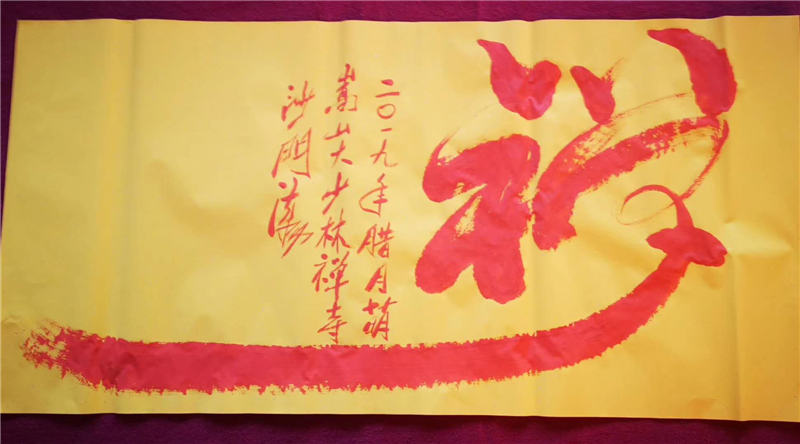 禅
二〇一九年腊月萌
嵩山大少林禅寺
沙門